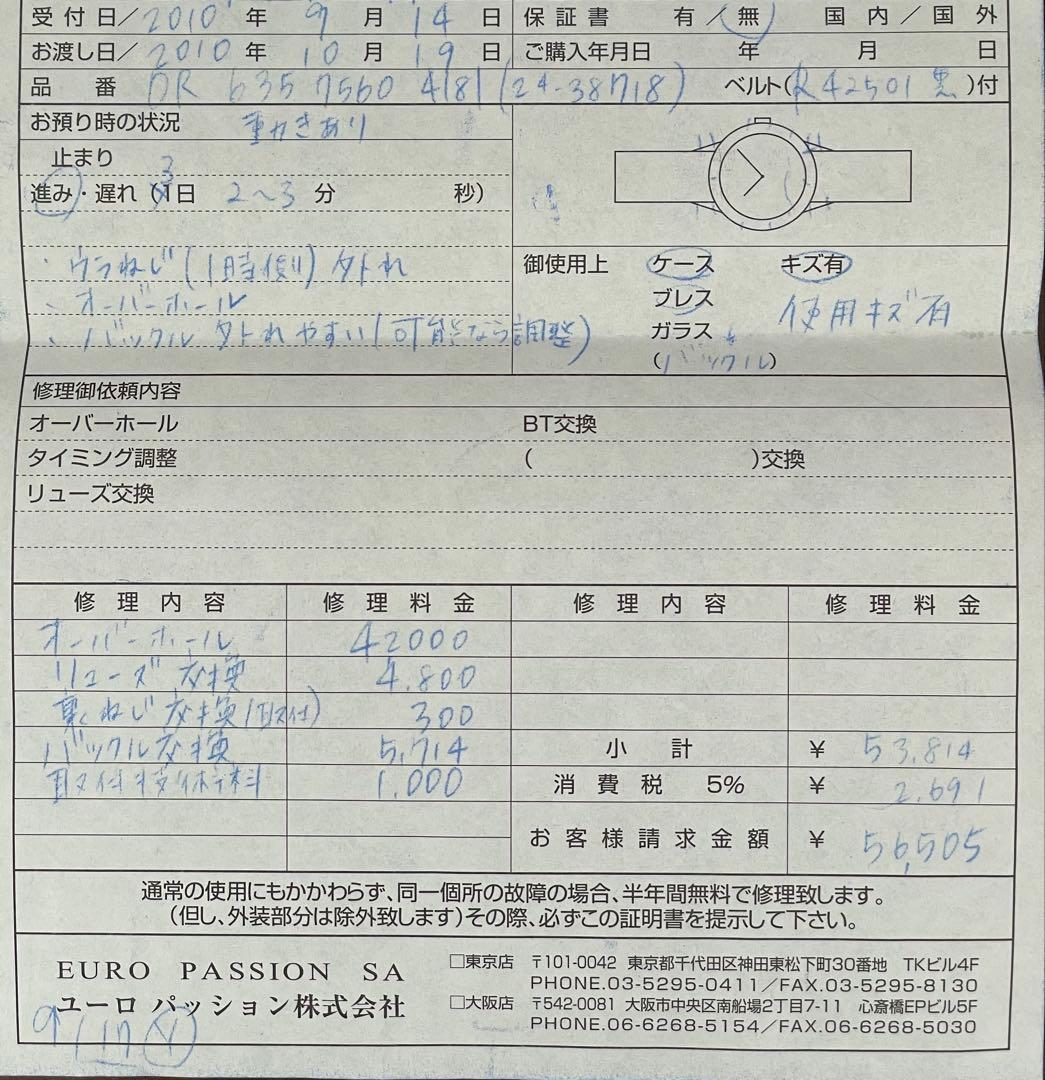 受付日／2010年 9月 14日 保証書 有／無 国内／国外
お渡し日／2010年 10月 19日 ご購入年月日 年 月 日
品番 OR 635 7560 4181 (24-38718) ベルト(R42501 黒)付
お預り時の状況 動きあり
止まり
3
進み・遅れ (1日 2〜3 分 秒)
・ウラねじ(1時側)外れ 御使用上 ケース キズ有
・オーバーホール ブレス 使用キズ有
・バックル外れやすい(可能なら調整) ガラス
(バックル)
修理御依頼内容
オーバーホール BT交換
タイミング調整 ( )交換
リューズ交換
修理内容 修理料金 修理内容 修理料金
オーバーホール 42000
リューズ交換 4.800
裏ねじ交換(取付) 300
バックル交換 5,714 小計 ￥ 53,814
取付技術料 1,000 消費税 5% ￥ 2,691
お客様請求金額 ￥ 56,505
通常の使用にもかかわらず、同一個所の故障の場合、半年間無料で修理致します。
(但し、外装部分は除外致します)その際、必ずこの証明書を提示して下さい。
EURO PASSION SA
ユーロ パッション株式会社
□東京店 〒101-0042 東京都千代田区神田東松下町30番地 TKビル4F
PHONE.03-5295-0411／FAX.03-5295-8130
□大阪店 〒542-0081 大阪市中央区南船場2丁目7-11 心斎橋EPビル5F
PHONE.06-6268-5154／FAX.06-6268-5030